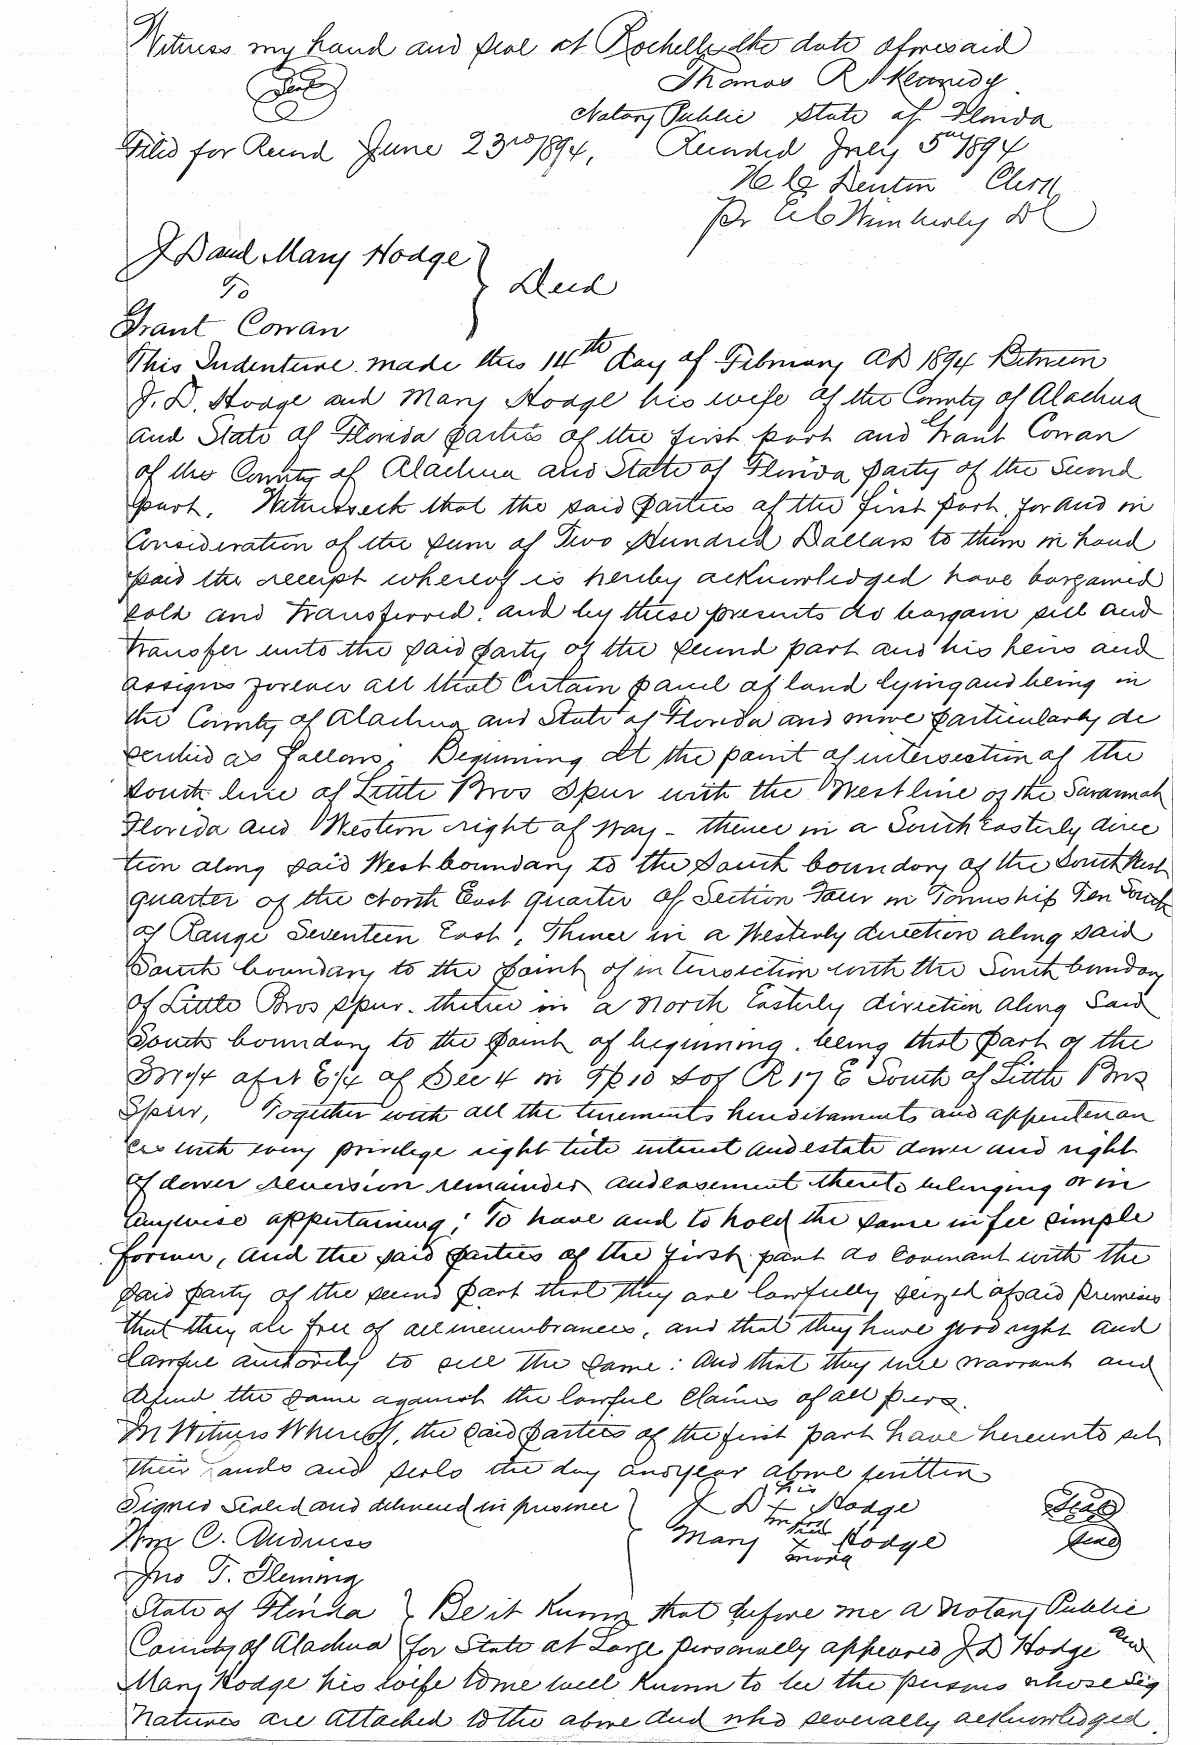 Witness my hand and seal at Rochelle the date aforesaid
Seal
Thomas R Kennedy
Notary Public State of Florida
Filed for Record June 23rd 1894, Recorded July 5th 1894
H C Denton Clerk
Pr E C Wimberly DC
J D and Mary Hodge
To
Deed
Grant Cowan
This Indenture made this 14th day of February AD 1894 Between
J. D. Hodge and Mary Hodge his wife of the County of Alachua
and State of Florida parties of the first part and Grant Cowan
of the County of Alachua and State of Florida party of the Second
part. Witnesseth that the said parties of the first part, for and in
Consideration of the sum of Two Hundred Dollars to them in hand
paid the receipt whereof is hereby acknowledged have bargained
sold and transferred and by these presents do bargain sell and
transfer unto the said party of the second part and his heirs and
assigns forever all that Certain parcel of land lying and being in
the County of Alachua and State of Florida and more particularly de
scribed as follows: Beginning at the point of intersection of the
south line of Little Bros Spur with the West line of the Savannah
Florida and Western right of way - thence in a South Easterly direc
tion along said West boundary to the South boundary of the South West
quarter of the North East quarter of Section Four in Township Ten South
of Range Seventeen East, Thence in a Westerly direction along said
South boundary to the point of intersection with the South boundary
of Little Bros Spur. thence in a North Easterly direction along Said
South boundary to the point of beginning. being that part of the
SW 1/4 of N E 1/4 of Sec 4 in Tp 10 S of R 17 E South of Little Bros
Spur, Together with all the tenements hereditaments and appurtenan
ces with every privilege right title interest and estate dower and right
of dower reversion remainder and easement thereto belonging or in
anywise appertaining; To have and to hold the same in fee simple
forever, and the said parties of the first part do covenant with the
said party of the second part that they are lawfully seized of said premises
that they are free of all incumbrances, and that they have good right and
lawful authority to sell the same: And that they will warrant and
defend the same against the lawful claims of all pers.
In Witness Whereof, the said parties of the first part have hereunto set
their hands and seals the day and year above written
Signed Sealed and delivered in presence
J D his x mark Hodge Seal
Wm C. Andruss
Mary her x mark Hodge Seal
Jno T. Fleming
State of Florida } Be it Known that before me a Notary Public
County of Alachua } for State at Large personally appeared J D Hodge and
Mary Hodge his wife to me well known to be the persons whose sig
natures are attached to the above deed who severally acknowledged.